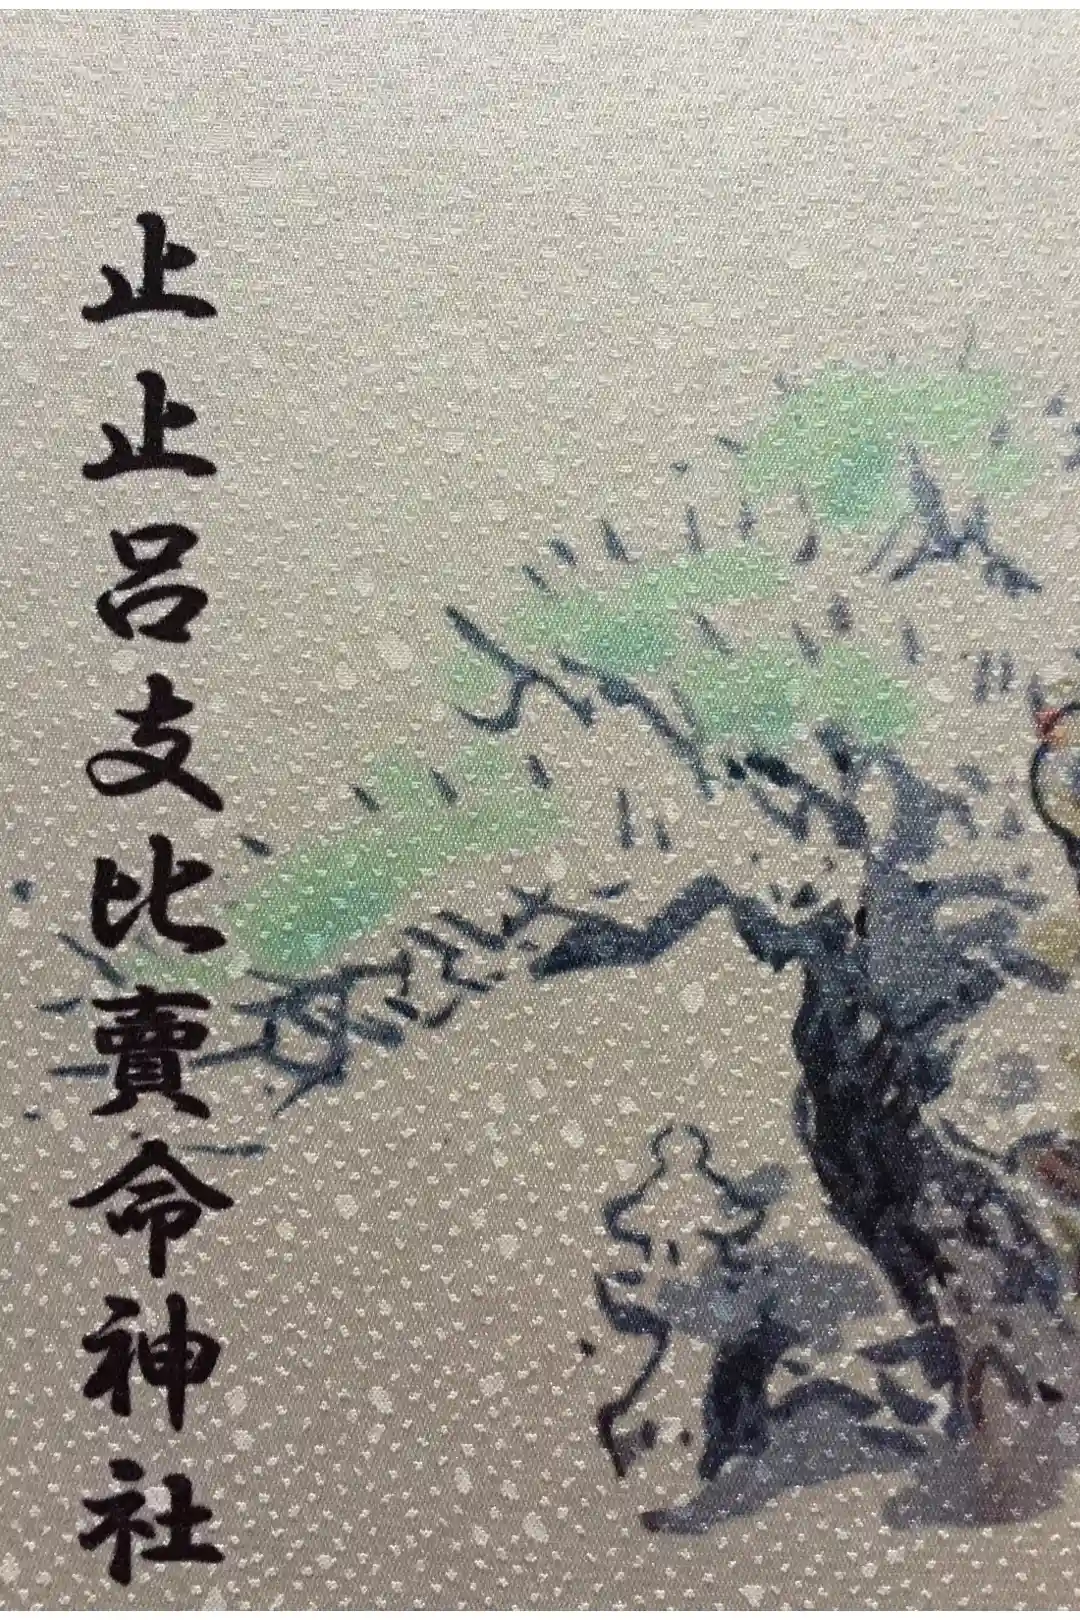 止止呂支比賣命神社